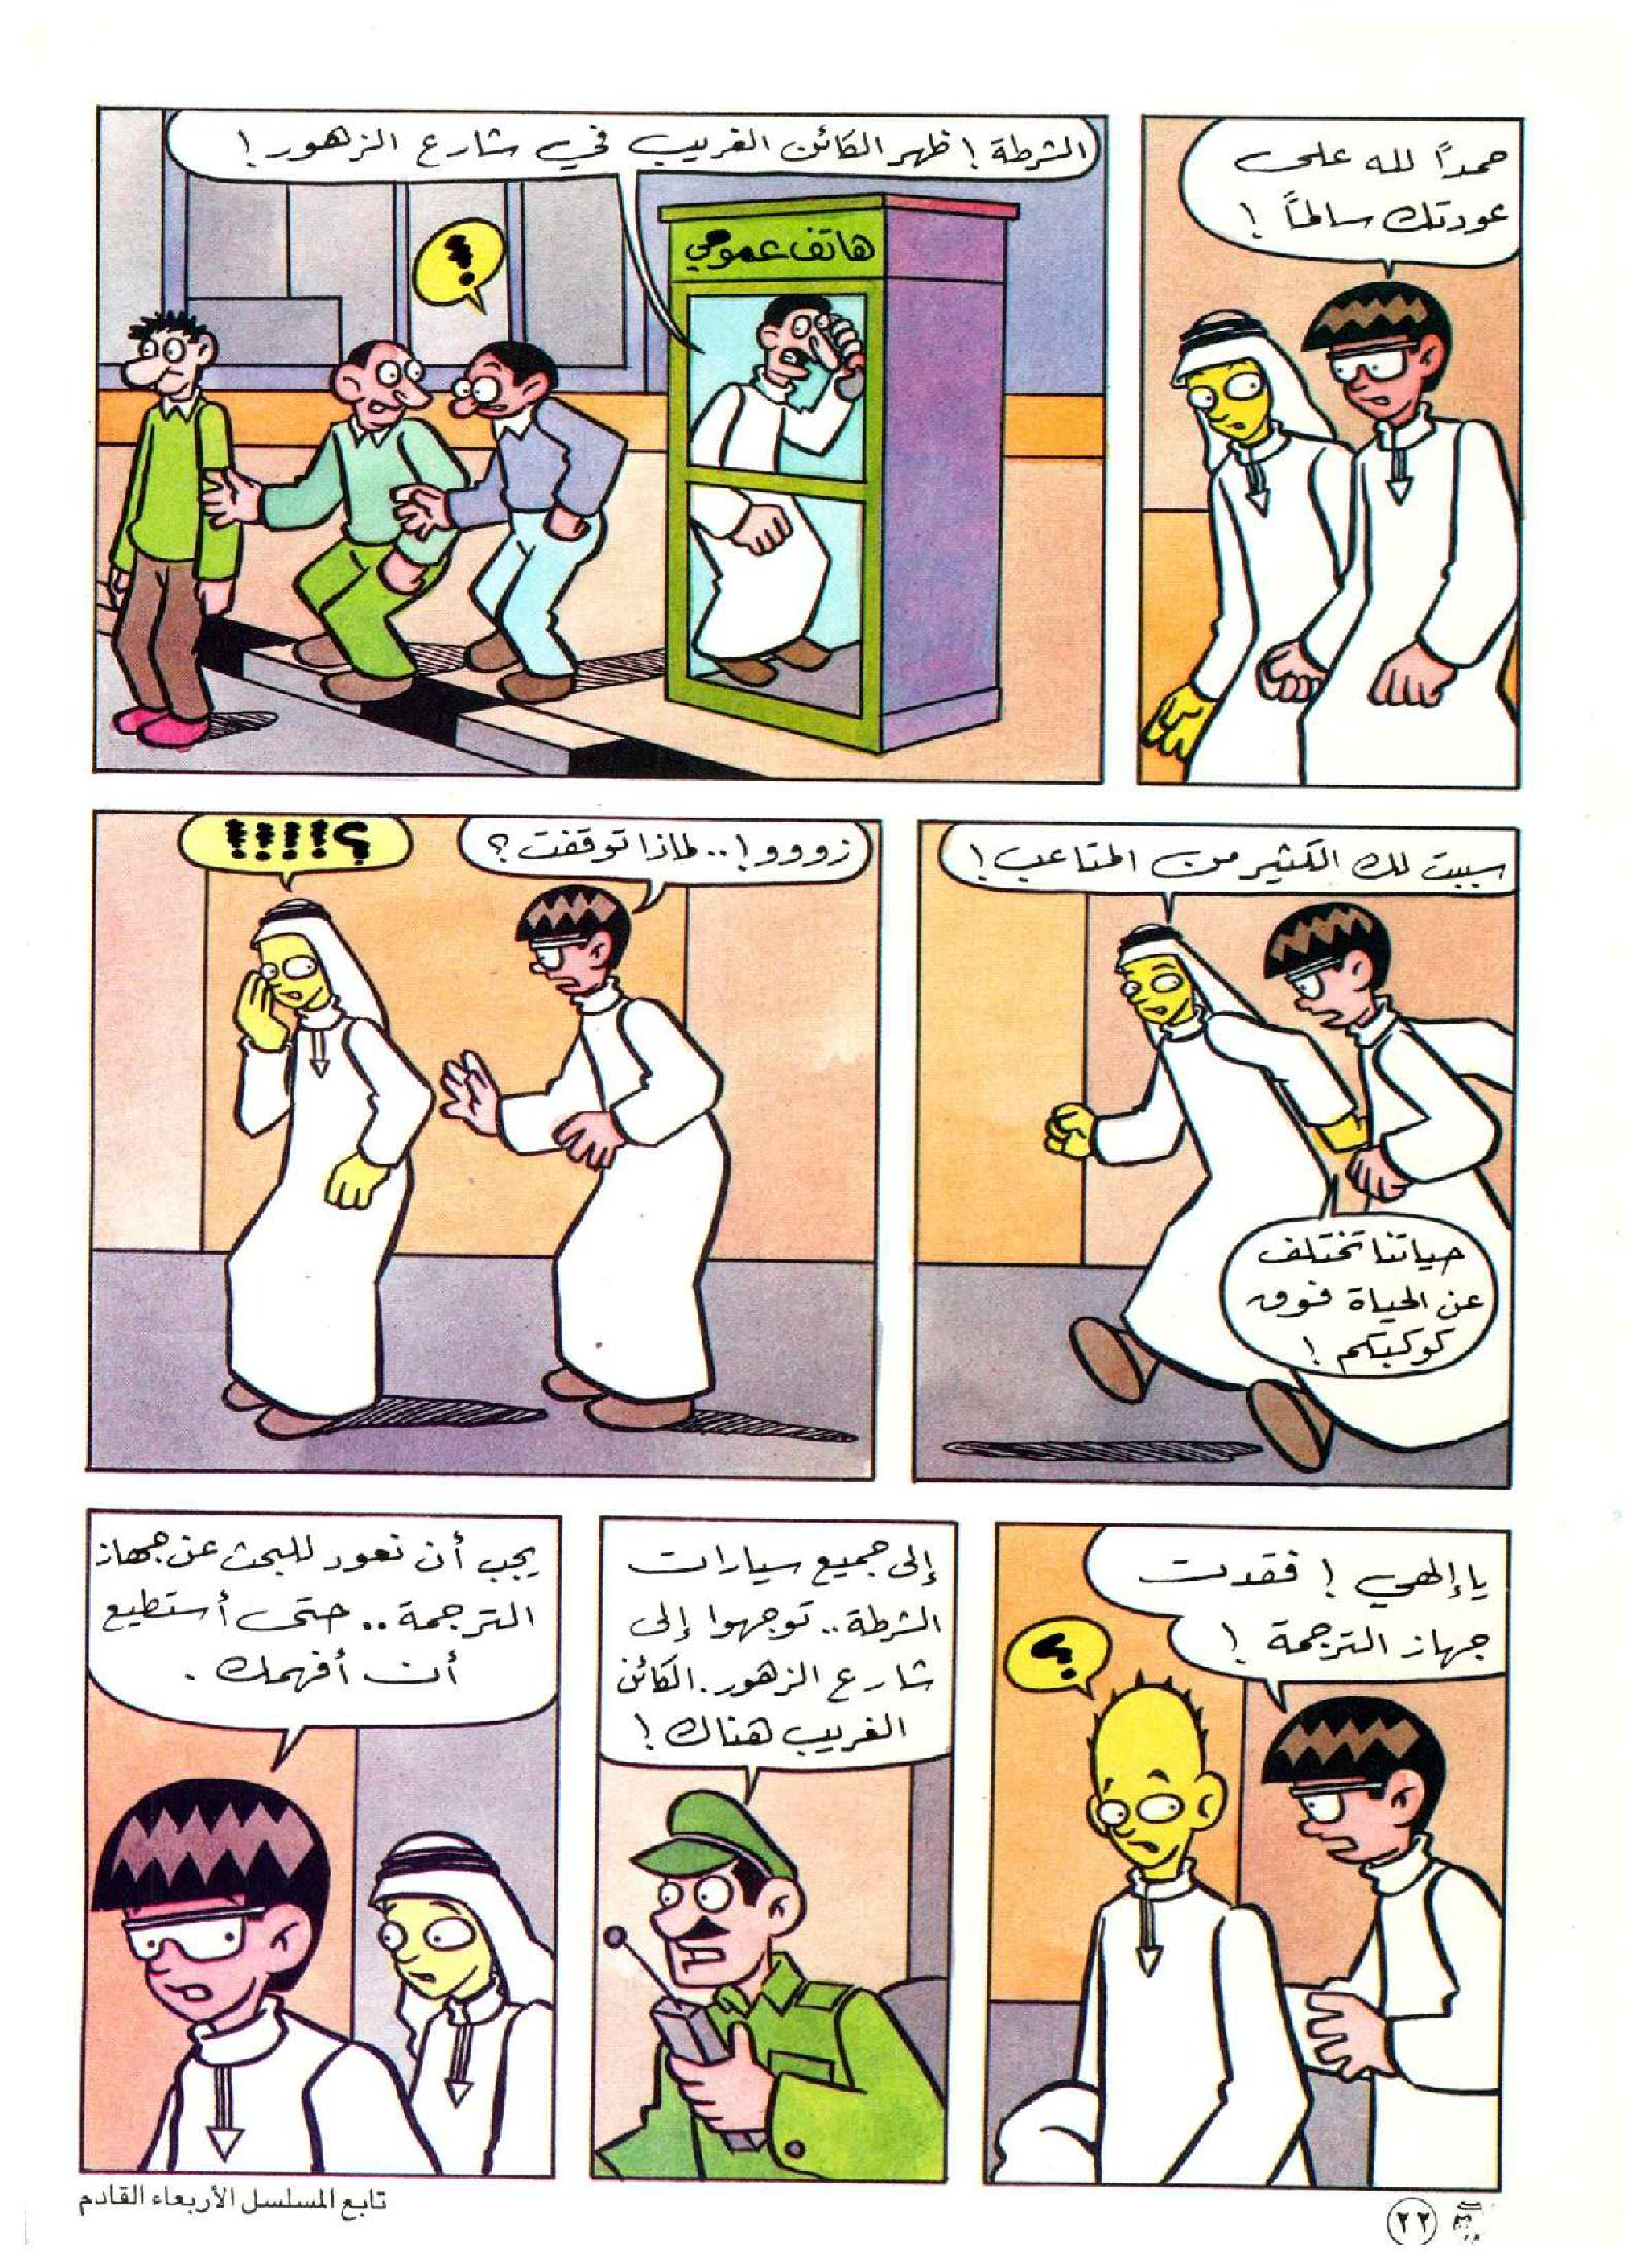 حمداً لله على
عودتك سالماً !
الشرطة ! ظهر الكائن الغريب في شارع الزهور !
هاتف عمومي
!
سببت لك الكثير من المتاعب !
حياتنا تختلف
عن الحياة فوق
كوكبكم !
زووو ! .. لماذا توقفت ؟
؟!!!!
يا إلهي ! فقدت
جهاز الترجمة !
؟
إلى جميع سيارات
الشرطة .. توجهوا إلى
شارع الزهور . الكائن
الغريب هناك !
يجب أن نعود للبحث عن جهاز
الترجمة .. حتى أستطيع
أن أفهمك .
تابع المسلسل الأربعاء القادم
٢٢